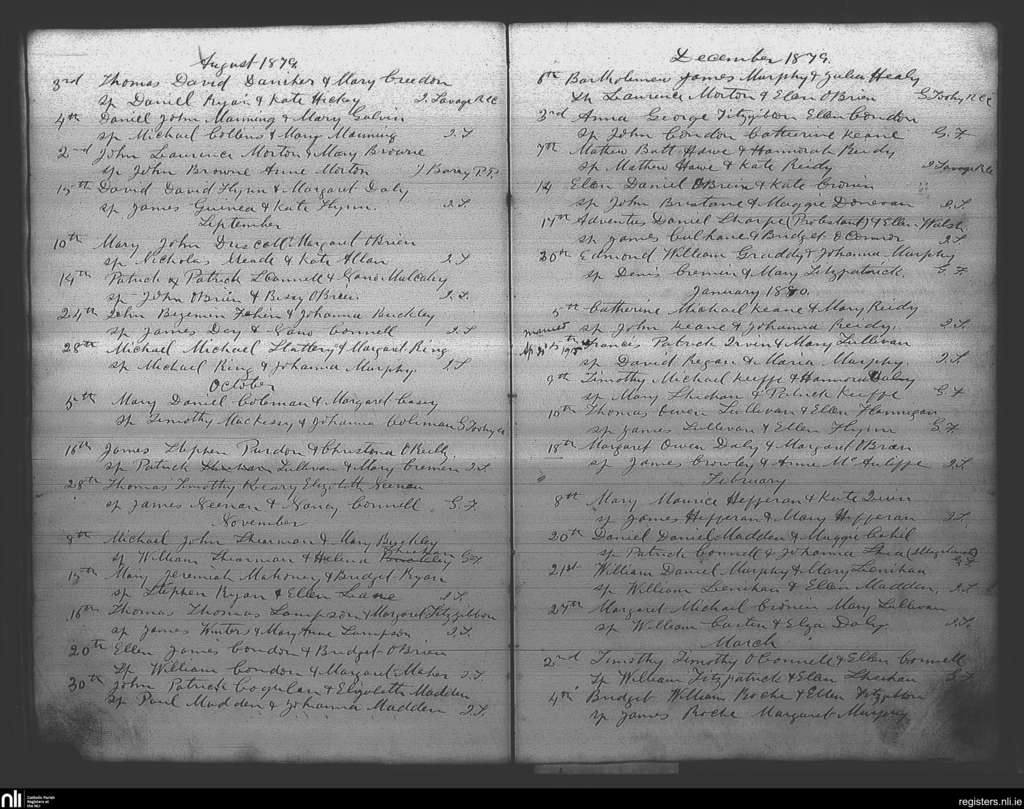 August 1879.
3rd Thomas David Daniher & Mary Creedon
Sp Daniel Ryan & Kate Hickey J Savage RCC
4th Daniel John Manning & Mary Galvin
Sp Michael Collins & Mary Manning J.S
2nd John Laurence Morton & Mary Browne
Sp John Browne Anne Morton J Barry P.P.
15th David David Flynn & Margaret Daly
Sp James Guinea & Kate Flynn. J.S
September
10th Mary John Driscoll Margaret OBrien
Sp Nicholas Meade & Kate Allan J.S
14th Patrick Patrick & Mulcahy
Sp John OBrien & Bessy OBrien. J.S.
24th John & Johanna Buckley
Sp James & Connell J.S
28th Michael Michael Slattery & Margaret Ring
Sp Michael Ring & Johanna Murphy. J.S
October
5th Mary Daniel Coleman & Margaret Casey
Sp Timothy Mackessy & Johanna Coleman G
16th James Stephen Purdon & OKeill
Sp Patrick Sullivan & Mary Cremen J.S
28th Thomas Timothy Keary Elizabeth Neenan
Sp James Neenan & Nancy Connell G.F
November
8th Michael John Shearman & Mary Buckley
Sp William Shearman & Helena
15th Mary Jeremiah Mahoney & Bridget Ryan
Sp Stephen Ryan & Ellen Lane J.S
16th Thomas Thomas Lampson & Margaret Fitzgibbon
Sp James Winters & Mary Anne Lampson J.S.
20th Ellen James Condon & Bridget OBrien
Sp William Condon & Margaret Maher J.S.
30th John Patrick Coghlan & Elizabeth Madden
Sp Paul Madden & Johanna Madden J.S.
December 1879.
6th Bartholomew James Murphy & Julia Healy
Sp Laurence Morton & Ellen OBrien G RCC
3rd Anna George Fitzgibbon Ellen Condon
Sp John Condon Catherine Keane G.F.
7th Mathew Batt Hawe & Hannorah Reidy
Sp Mathew Hawe & Kate Reidy J Savage RCC
14 Ellen Daniel OBrein & Kate Cronin
Sp John & Maggie Donovan J.S.
17th Daniel Sharpe (Protestant) & Ellen Walsh
Sp James Culhane & Bridget OConnor J.S
30th Edmond William Graddy & Johanna Murphy
Sp Denis Cremen & Mary Fitzpatrick. G.F
January 1880.
5th Catherine Michael Keane & Mary Reidy
Sp John Keane & Johanna Reidy. J.S.
married
Francis Patrick Irvin & Mary Sullivan
Sp David Regan & Maria Murphy. J.S
9th Timothy Michael Keeffe & Daly
Sp Mary Sheehan & Patrick Keeffe G.F
10th Thomas Owen Sullivan & Ellen Flannigan
Sp James Sullivan & Ellen Flynn G.F.
18th Margaret Owen Daly & Margaret OBrien
Sp James Crowley & Anne McAuliffe J.S.
February
8th Mary Maurice Hefferan & Kate Irvin
Sp James Hefferan & Mary Hefferan J.S.
20th Daniel Daniel Madden & Maggie Cahil
Sp Patrick Connell & Johanna Shea (Illegitimate) G.F
21st William Daniel Murphy & Mary Lenihan
Sp William Lenihan & Ellen Madden. J.S
27th Margaret Michael Cronin Mary Sullivan
Sp William & Eliza Daly J.S.
March
2nd Timothy Timothy OConnell & Ellen Connell
Sp William Fitzpatrick & Ellen Sheehan G.F
4th Bridget William Roche & Ellen Fitzgibbon
Sp James Roche Margaret Murphy
nli Catholic Parish Registers at the NLI
registers.nli.ie